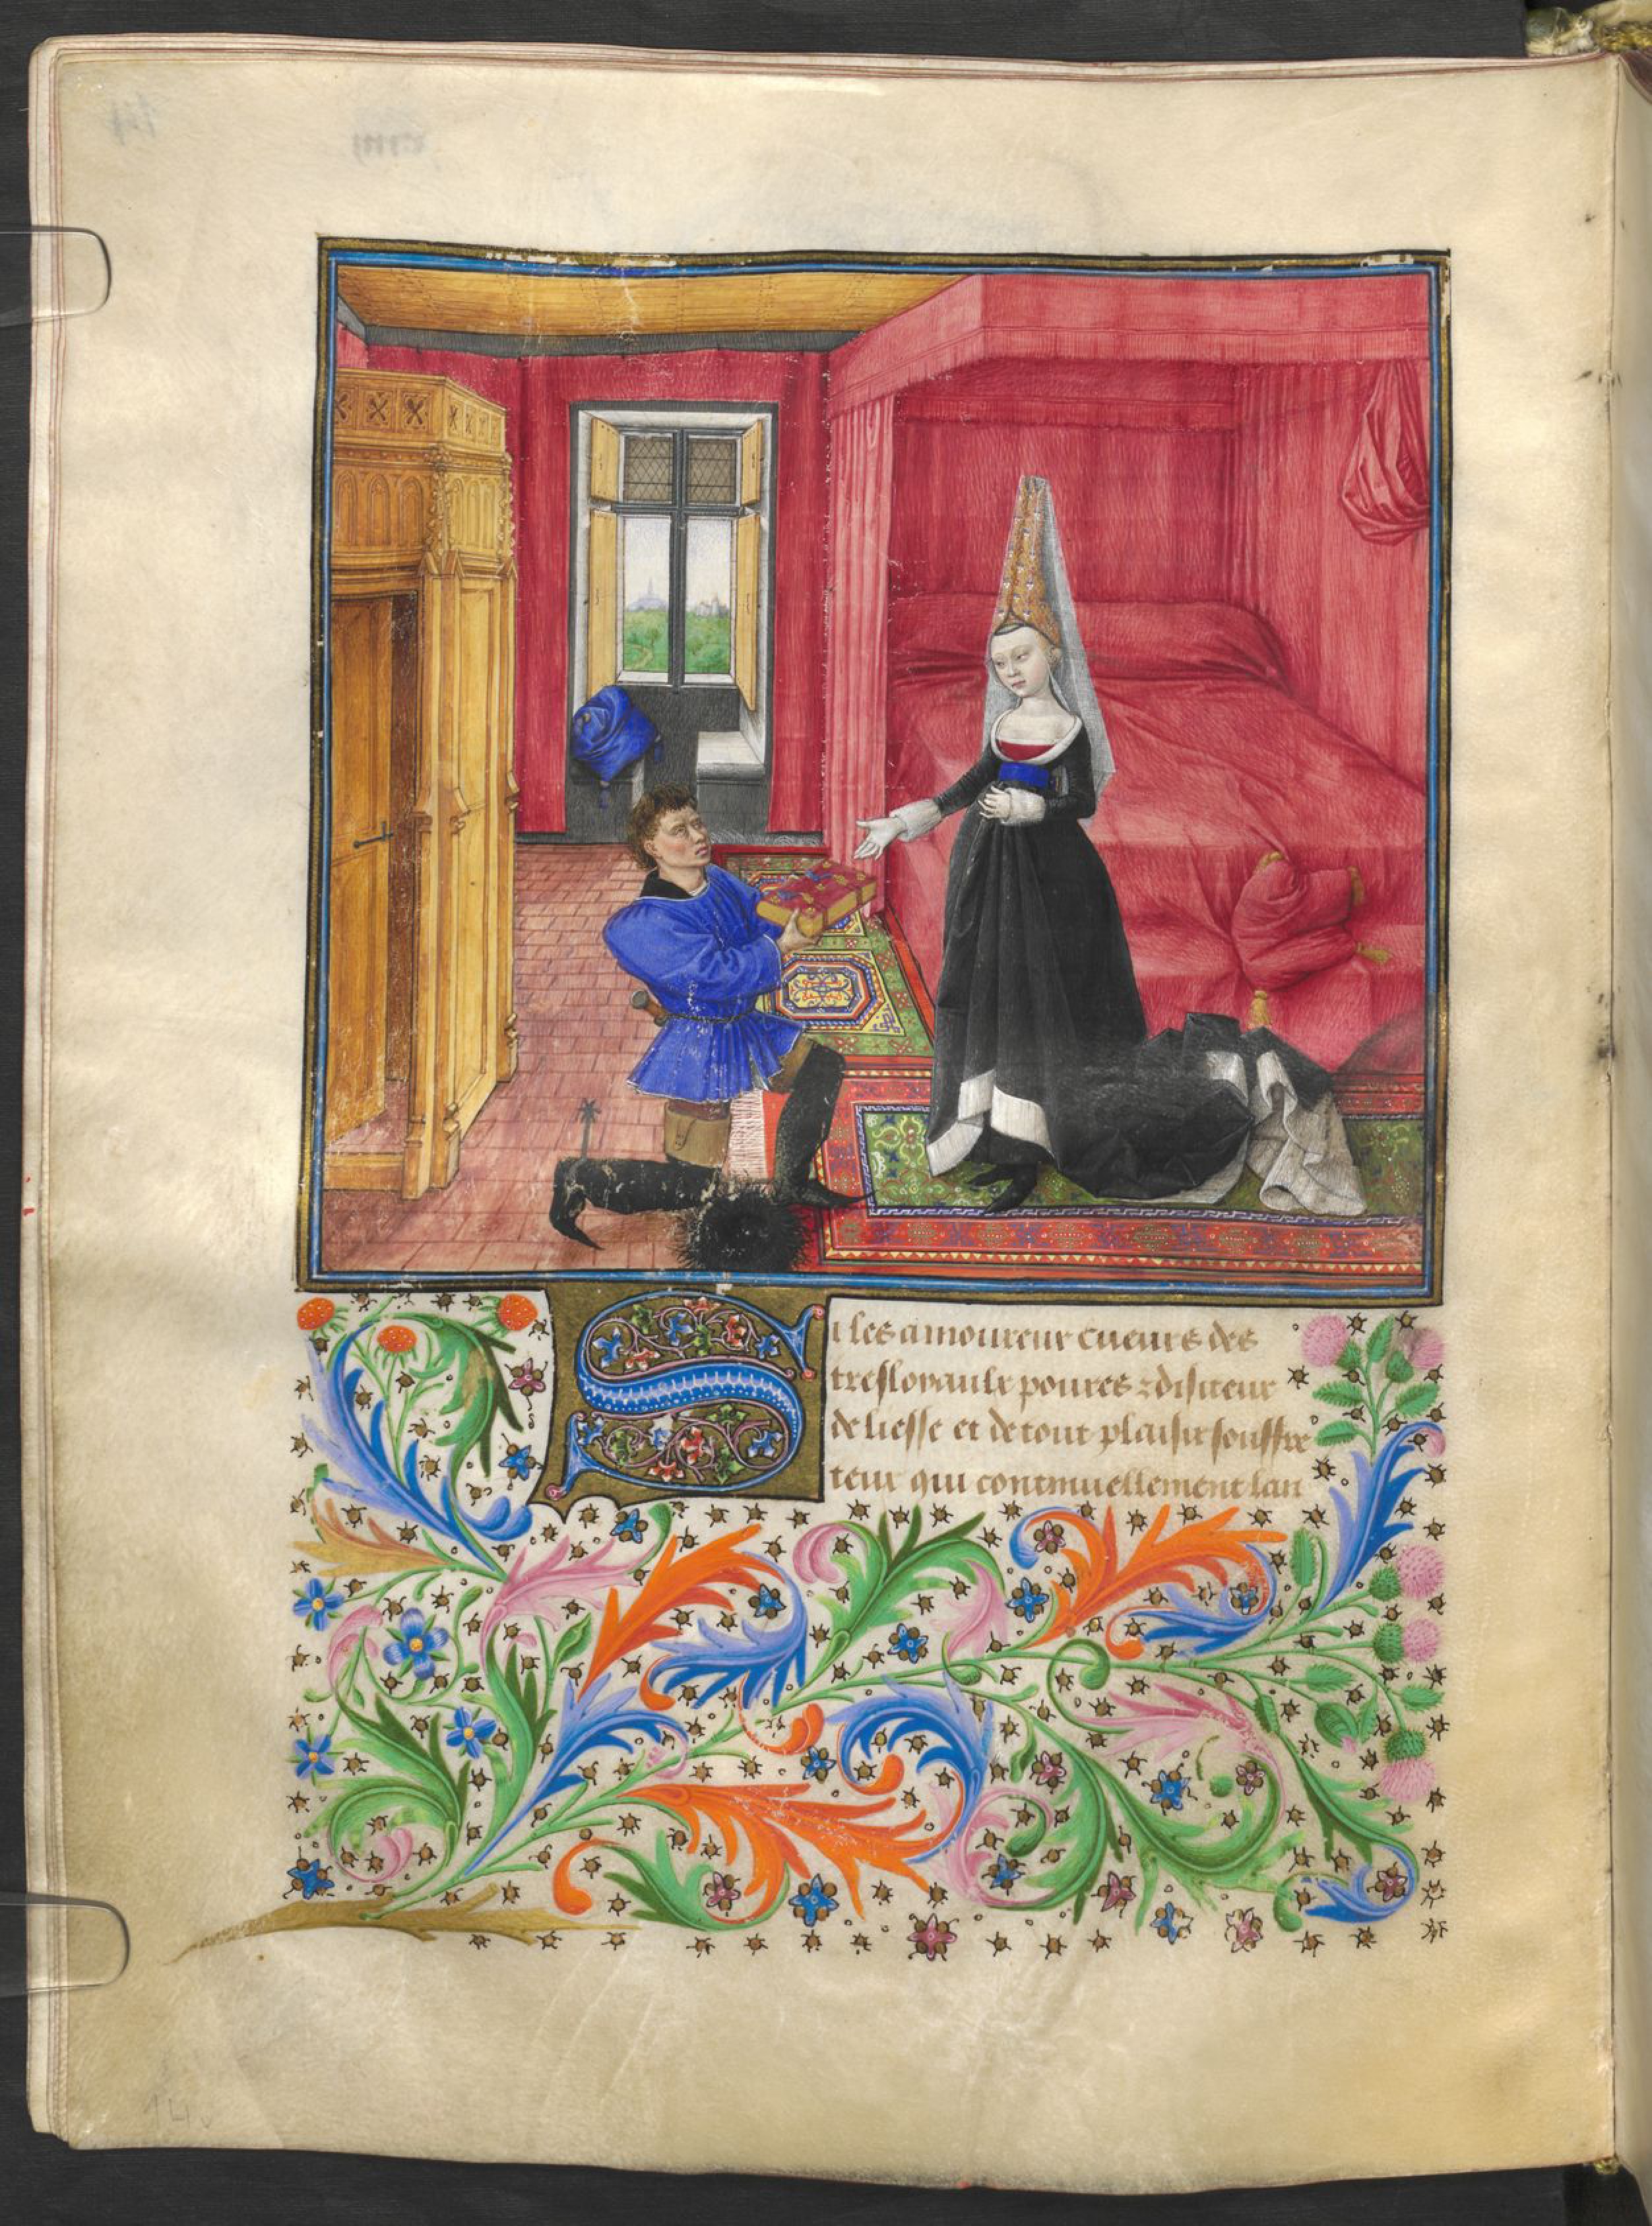 Si les amoureux cueurs des
tresloyaulx poures ⁊ disiteux
de liesse et de tout plaisir souffre
teux qui continuellement lan
14v